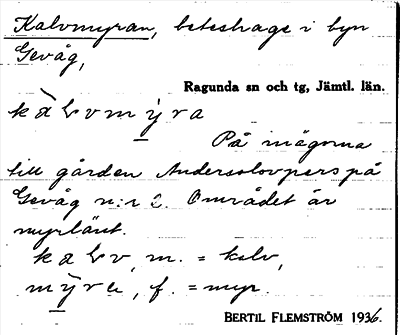 Kalvmyran, beteshage i byn
Gevåg,
Ragunda sn och tg, Jämtl. län.
På inägorna
till gården Andersolovpers på
Gevåg n:r 2. Området är
myrlänt.
m. = kalv,
f. = myr.
BERTIL FLEMSTRÖM 1936.